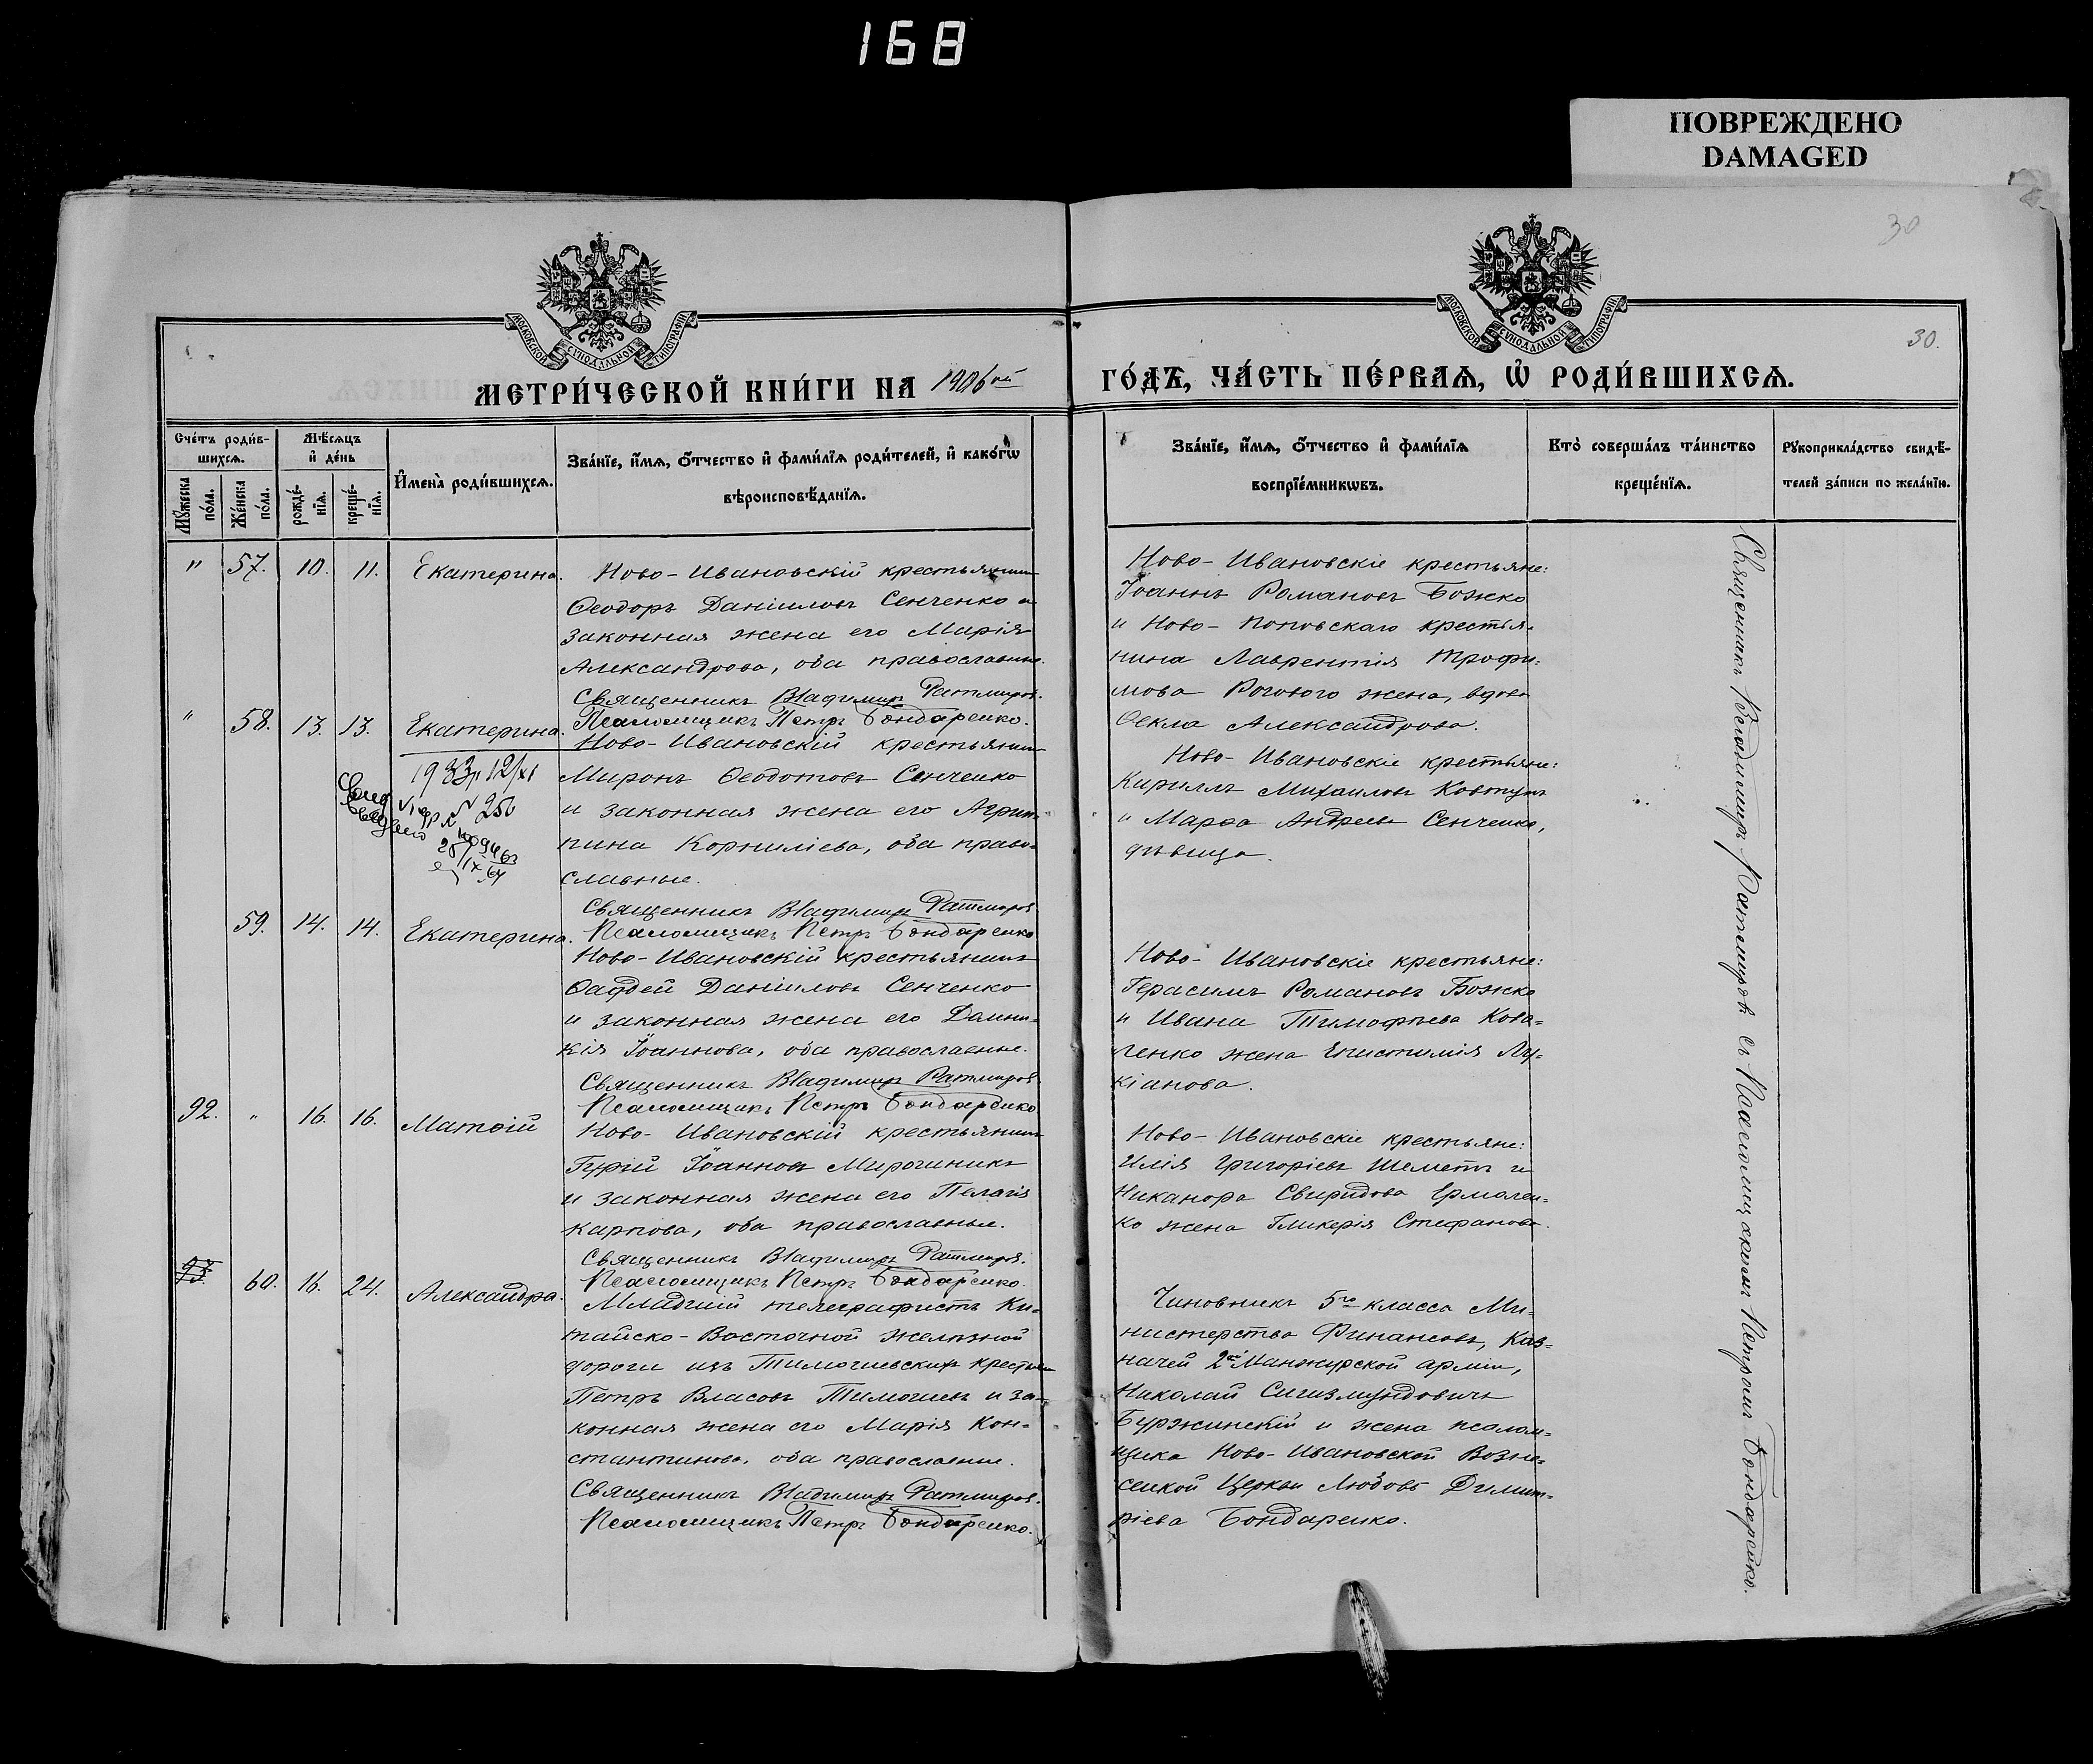 168
ПОВРЕЖДЕНО
DAMAGED
30
30.
МОСКОВСКОЙ СѴНОДАЛЬНОЙ ТИПОГРАФІИ
МОСКОВСКОЙ СѴНОДАЛЬНОЙ ТИПОГРАФІИ
МЕТРИ́ЧЕСКОЙ КНИ́ГИ НА 1906ый
ГО́ДЪ, ЧА́СТЬ ПЕ́РВАѦ, Ѡ҆ РОДИ́ВШИХСѦ.
Сче́тъ роди́в-
шихсѧ.
Мѣ́сѧцъ
и҆ де́нь
Мꙋ́жеска по́ла.
Же́нска по́ла.
рожде́-нїѧ.
креще́-нїѧ.
И҆мена̀ роди́вшихсѧ.
Зва́нїе, и҆́мѧ, ѻ҆́тчество и҆ фами́лїѧ роди́телей, и҆ како́гѡ
вѣроисповѣ́данїѧ.
Зва́нїе, и҆́мѧ, ѻ҆́тчество и҆ фами́лїѧ
воспрїе́мникѡвъ.
Кто̀ соверша́лъ та́инство
креще́нїѧ.
Рꙋкоприкла́дство свидѣ́-
телей за́писи по жела́нїю.
" 57. 10. 11. Екатерина. Ново-Ивановскій крестьянинъ
Ѳеодоръ Даніиловъ Сенченко и
законная жена его Марія
Александрова, оба православные.
Священникъ Владимиръ Ратмировъ.
Псаломщикъ Петръ Бондаренко.
Ново-Ивановскіе крестьяне:
Іоаннъ Романовъ Божко
и Ново-Поповскаго крестья-
нина Лаврентія Трофи-
мова Рогового жена, вдова
Ѳекла Александрова.
" 58. 13. 13. Екатерина.
1933 12/XI
№ 250
Ново-Ивановскій крестьянинъ
Миронъ Ѳеодотовъ Сенченко
и законная жена его Агрип-
пина Корниліева, оба право-
славные.
Священникъ Владимиръ Ратмировъ
Псаломщикъ Петръ Бондаренко
Ново-Ивановскіе крестьяне:
Кириллъ Михаиловъ Ковтунъ
и Марѳа Андреева Сенченко,
дѣвица.
59. 14. 14. Екатерина.
Ново-Ивановскій крестьянинъ
Ѳаддей Даніиловъ Сенченко
и законная жена его Домни-
кія Іоаннова, оба православные.
Священникъ Владимиръ Ратмировъ
Псаломщикъ Петръ Бондаренко
Ново-Ивановскіе крестьяне:
Герасимъ Романовъ Божко
и Ивана Тимофѣева Кова-
ленко жена Епистимія Лу-
кіанова.
92. " 16. 16. Матѳій
Ново-Ивановскій крестьянинъ
Гурій Іоанновъ Мирочникъ
и законная жена его Пелагія
Карпова, оба православные.
Священникъ Владимиръ Ратмировъ.
Псаломщикъ Петръ Бондаренко.
Ново-Ивановскіе крестьяне:
Илія Григоріевъ Шеметъ и
Никанора Свиридова Ермолен-
ко жена Гликерія Стефанова.
93. 60. 16. 24. Александра.
Младшій телеграфистъ Ки-
тайско-Восточной желѣзной
дороги изъ Тимочиевскихъ крестьянъ
Петръ Власовъ Тимочиевъ и за-
конная жена его Марія Кон-
стантинова, оба православные.
Священникъ Владимиръ Ратмировъ.
Псаломщикъ Петръ Бондаренко.
Чиновникъ 5го класса Ми-
нистерства Финансовъ, Каз-
начей 2ой Манжурской арміи,
Николай Сигизмундовичъ
Буржинскій и жена псалом-
щика Ново-Ивановской Возне-
сенской Церкви Любовь Димит-
ріева Бондаренко.
Священникъ Владимиръ Ратмировъ съ Псаломщикомъ Петромъ Бондаренко.